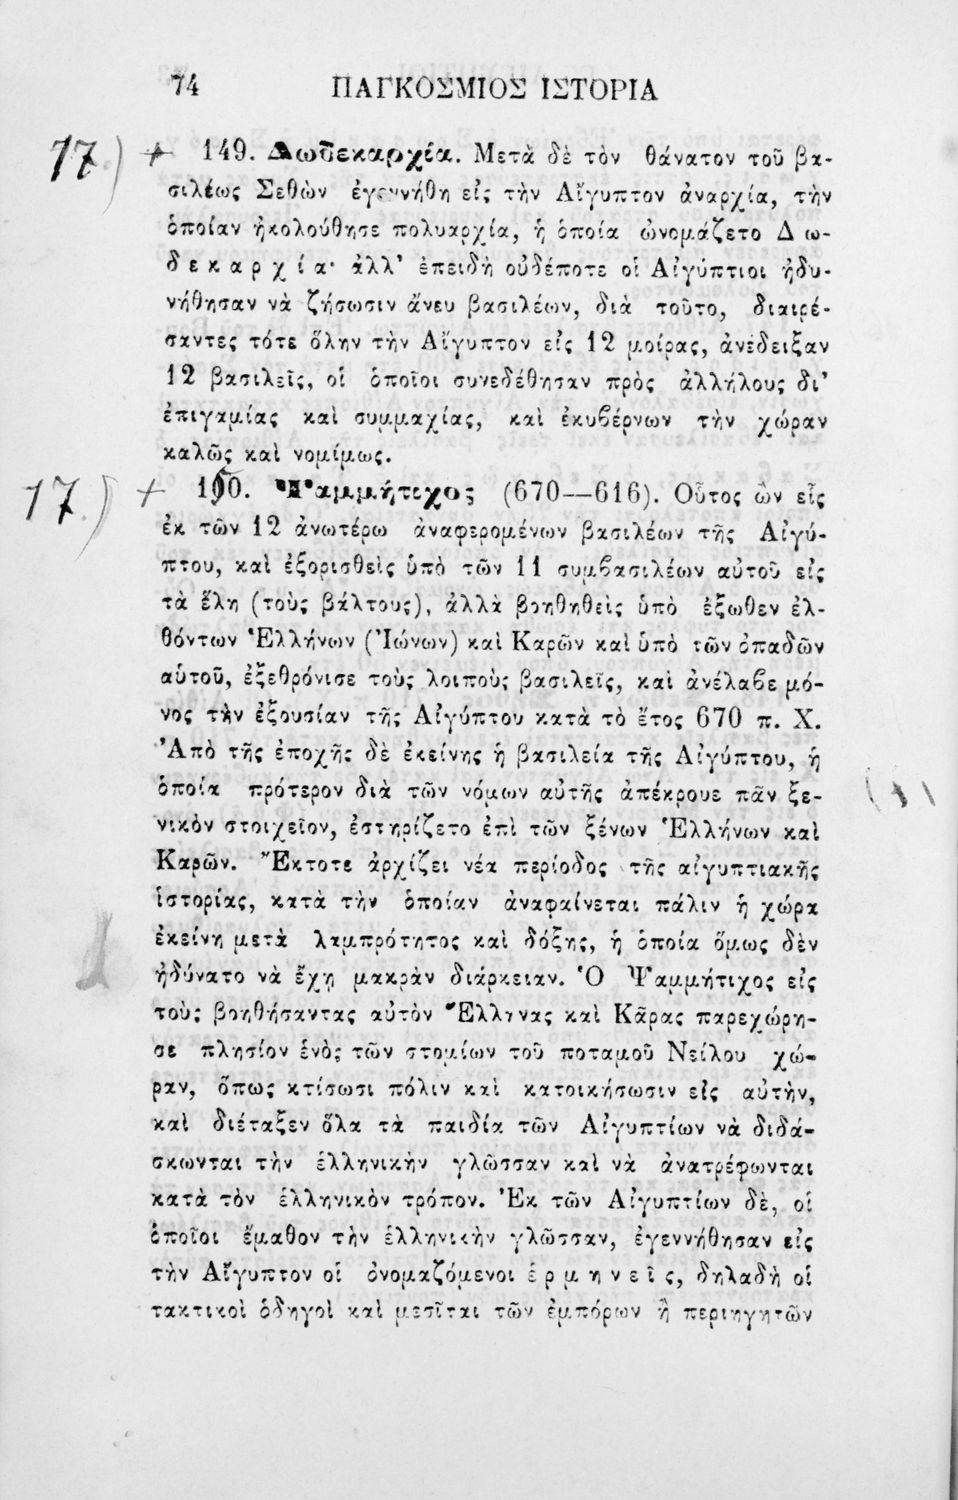 74 ΠΑΓΚΟΣΜΙΟΣ ΙΣΤΟΡΙΑ
17.) + 149. Δωδεκαρχία. Μετὰ δὲ τὸν θάνατον τοῦ βα-
σιλέως Σεθὼν ἐγεννήθη εἰς τὴν Αἴγυπτον ἀναρχία, τὴν
ὁποίαν ἠκολούθησε πολυαρχία, ἡ ὁποία ὠνομάζετο Δω-
δεκαρχία· ἀλλ' ἐπειδὴ οὐδέποτε οἱ Αἰγύπτιοι ἠδυ-
νήθησαν νὰ ζήσωσιν ἄνευ βασιλέων, διὰ τοῦτο, διαιρέ-
σαντες τότε ὅλην τὴν Αἴγυπτον εἰς 12 μοίρας, ἀνέδειξαν
12 βασιλεῖς, οἱ ὁποῖοι συνεδέθησαν πρὸς ἀλλήλους δι'
ἐπιγαμίας καὶ συμμαχίας, καὶ ἐκυβέρνων τὴν χώραν
καλῶς καὶ νομίμως.
17.) + 150. Ψαμμήτιχος (670—616). Οὗτος ὢν εἷς
ἐκ τῶν 12 ἀνωτέρω ἀναφερομένων βασιλέων τῆς Αἰγύ-
πτου, καὶ ἐξορισθεὶς ὑπὸ τῶν 11 συμβασιλέων αὐτοῦ εἰς
τὰ ἕλη (τοὺς βάλτους), ἀλλὰ βοηθηθεὶς ὑπὸ ἔξωθεν ἐλ-
θόντων Ἑλλήνων (Ἰώνων) καὶ Καρῶν καὶ ὑπὸ τῶν ὀπαδῶν
αὑτοῦ, ἐξεθρόνισε τοὺς λοιποὺς βασιλεῖς, καὶ ἀνέλαβε μό-
νος τὴν ἐξουσίαν τῆς Αἰγύπτου κατὰ τὸ ἔτος 670 π. Χ.
Ἀπὸ τῆς ἐποχῆς δὲ ἐκείνης ἡ βασιλεία τῆς Αἰγύπτου, ἡ
ὁποία πρότερον διὰ τῶν νόμων αὐτῆς ἀπέκρουε πᾶν ξε-
νικὸν στοιχεῖον, ἐστηρίζετο ἐπὶ τῶν ξένων Ἑλλήνων καὶ
Καρῶν. Ἔκτοτε ἀρχίζει νέα περίοδος τῆς αἰγυπτιακῆς
ἱστορίας, κατὰ τὴν ὁποίαν ἀναφαίνεται πάλιν ἡ χώρα
ἐκείνη μετὰ λαμπρότητος καὶ δόξης, ἡ ὁποία ὅμως δὲν
ἠδύνατο νὰ ἔχῃ μακρὰν διάρκειαν. Ὁ Ψαμμήτιχος εἰς
τοὺς βοηθήσαντας αὐτὸν Ἕλληνας καὶ Κᾶρας παρεχώρη-
σε πλησίον ἑνὸς τῶν στομίων τοῦ ποταμοῦ Νείλου χώ-
ραν, ὅπως κτίσωσι πόλιν καὶ κατοικήσωσιν εἰς αὐτήν,
καὶ διέταξεν ὅλα τὰ παιδία τῶν Αἰγυπτίων νὰ διδά-
σκωνται τὴν ἑλληνικὴν γλῶσσαν καὶ νὰ ἀνατρέφωνται
κατὰ τὸν ἑλληνικὸν τρόπον. Ἐκ τῶν Αἰγυπτίων δὲ, οἱ
ὁποῖοι ἔμαθον τὴν ἑλληνικὴν γλῶσσαν, ἐγεννήθησαν εἰς
τὴν Αἴγυπτον οἱ ὀνομαζόμενοι ἑρμηνεῖς, δηλαδὴ οἱ
τακτικοὶ ὁδηγοὶ καὶ μεσῖται τῶν ἐμπόρων ἢ περιηγητῶν